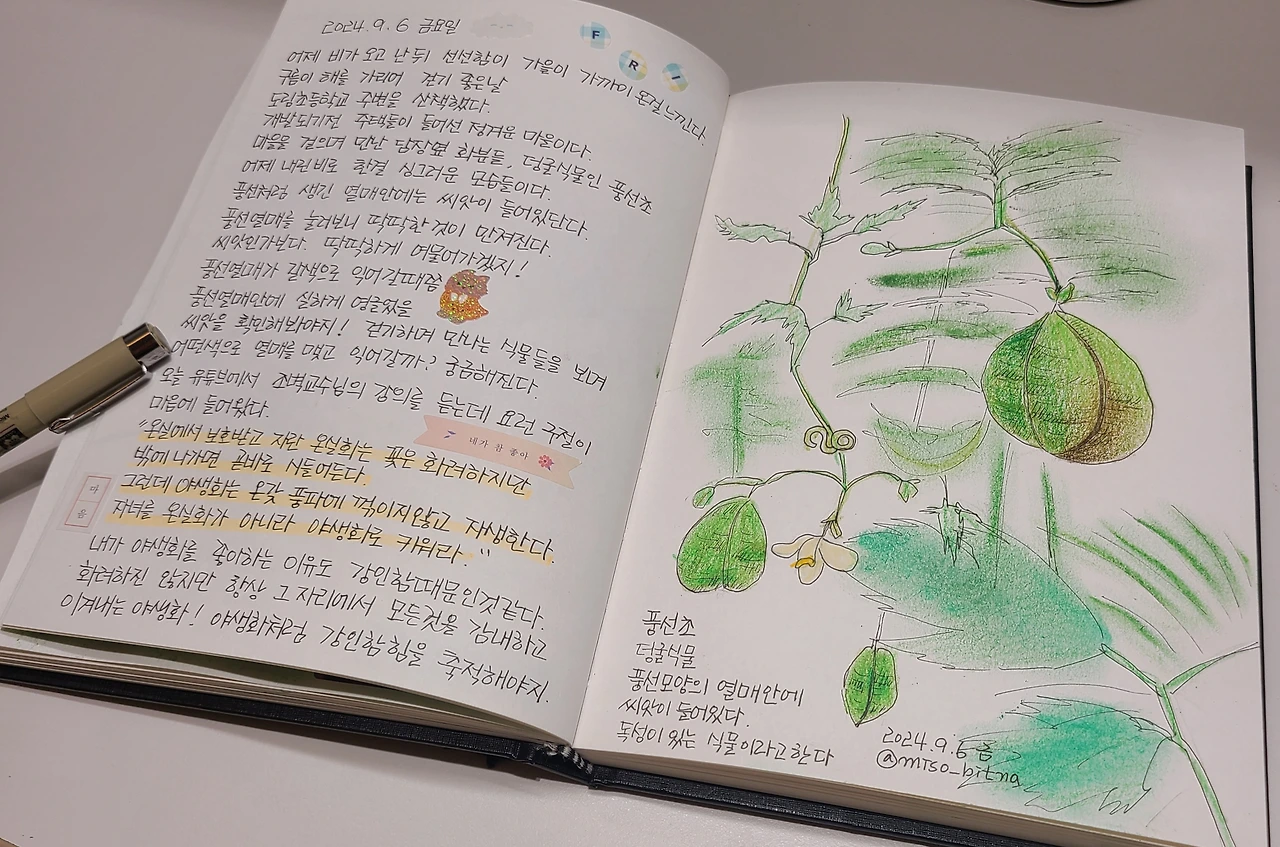 2024.9.6 금요일
F R I
어제 비가 오고 난 뒤 선선함이 가을이 가까이 온걸 느낀다.
구름이 해를 가리어 걷기 좋은날
도림초등학교 주변을 산책했다.
개발되기전 주택들이 들어선 정겨운 마을이다.
마을을 걸으며 만난 담장옆 화분들, 덩굴식물인 풍선초
어제 내린비로 한결 싱그러운 모습들이다.
풍선처럼 생긴 열매안에는 씨앗이 들어있단다.
풍선열매를 눌러보니 딱딱한것이 만져진다.
씨앗인가보다. 딱딱하게 여물어가겠지!
풍선열매가 갈색으로 익어갈때쯤
풍선열매안에 실하게 영글었을
씨앗을 확인해봐야지! 걷기하며 만나는 식물들을 보며
어떤색으로 열매를 맺고 익어갈까? 궁금해진다.
오늘 유튜브에서 조벽교수님의 강의를 듣는데 요런 구절이
마음에 들어왔다.
네가 참 좋아
"온실에서 보호받고 자란 온실화는 꽃은 화려하지만
밖에 나가면 곧바로 시들어든다.
그런데 야생화는 온갖 풍파에 꺽이지않고 재생한다.
자녀를 온실화가 아니라 야생화로 키워라."
마음
내가 야생화를 좋아하는 이유도 강인함때문인것같다.
화려하진 않지만 항상 그 자리에서 모든것을 감내하고
이겨내는 야생화! 야생화처럼 강인함힘을 축적해야지.
풍선초
덩굴식물
풍선모양의 열매안에
씨앗이 들어있다.
독성이 있는 식물이라고한다
2024.9.6 금
@miso_bitna